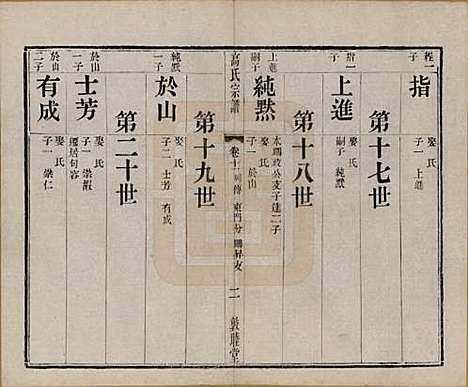 程一
子
指
娶氏
子一 上進
第十七世
指一
子
上進
娶氏
嗣子 純默
第十八世
上進
嗣子
純默
本珊政公支子達二子
娶氏
子一 於山
高氏宗譜
卷十 列傳 東門分 開昇支
二
敦睦堂
第十九世
純默
一子
於山
娶氏
子二 士芳 有成
第二十世
於山
一子
士芳
娶氏
子一 崇嘏
遷居句容
於山
二子
有成
娶氏
子一 崇仁